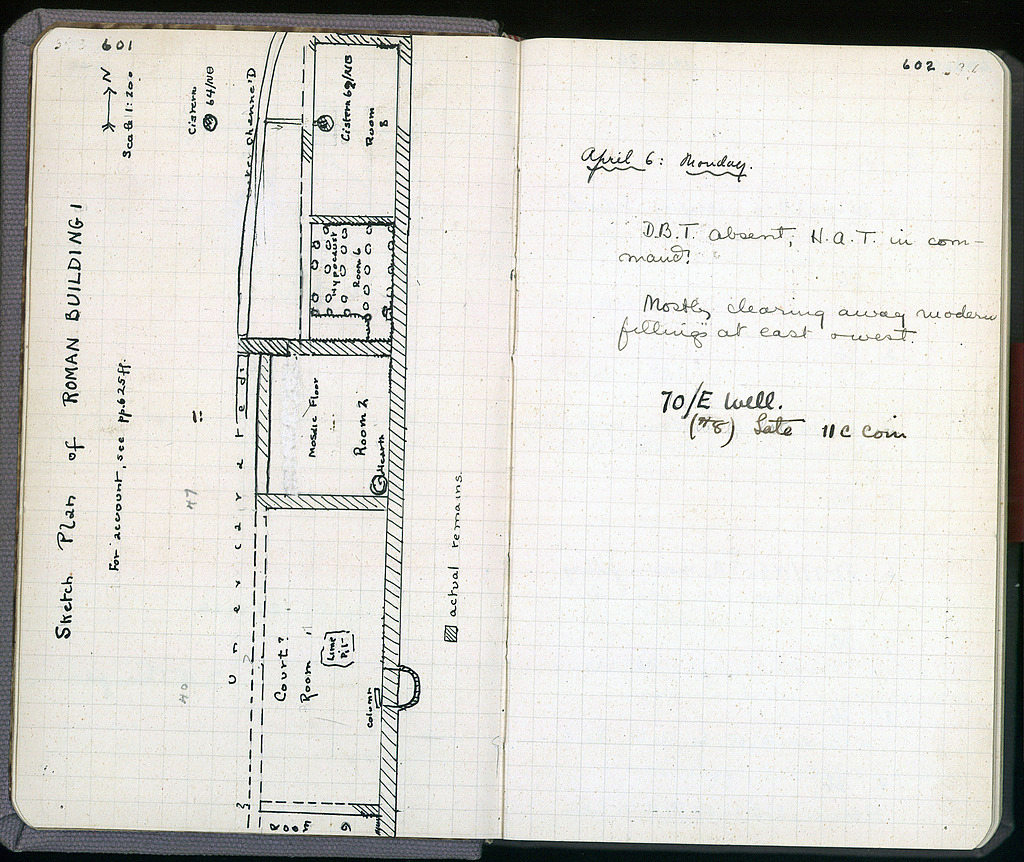 601
Sketch Plan of ROMAN BUILDING 1
For account, see pp. 625 ff.
N
Scale 1:200
Cistern
64/NB
water channel
Cistern 69/NB
Room
8
Hypocaust
Room 6
Mosaic Floor
Room 2
Hearth
Unexcavated
47
40
Court?
Room 1
Lime
Pit
Column
Room
9
actual remains
602
April 6: Monday.
D.B.T. absent, H.A.T. in com-
mand.
Mostly clearing away modern
fillings at east & west.
70/E Well.
Late 11c coin